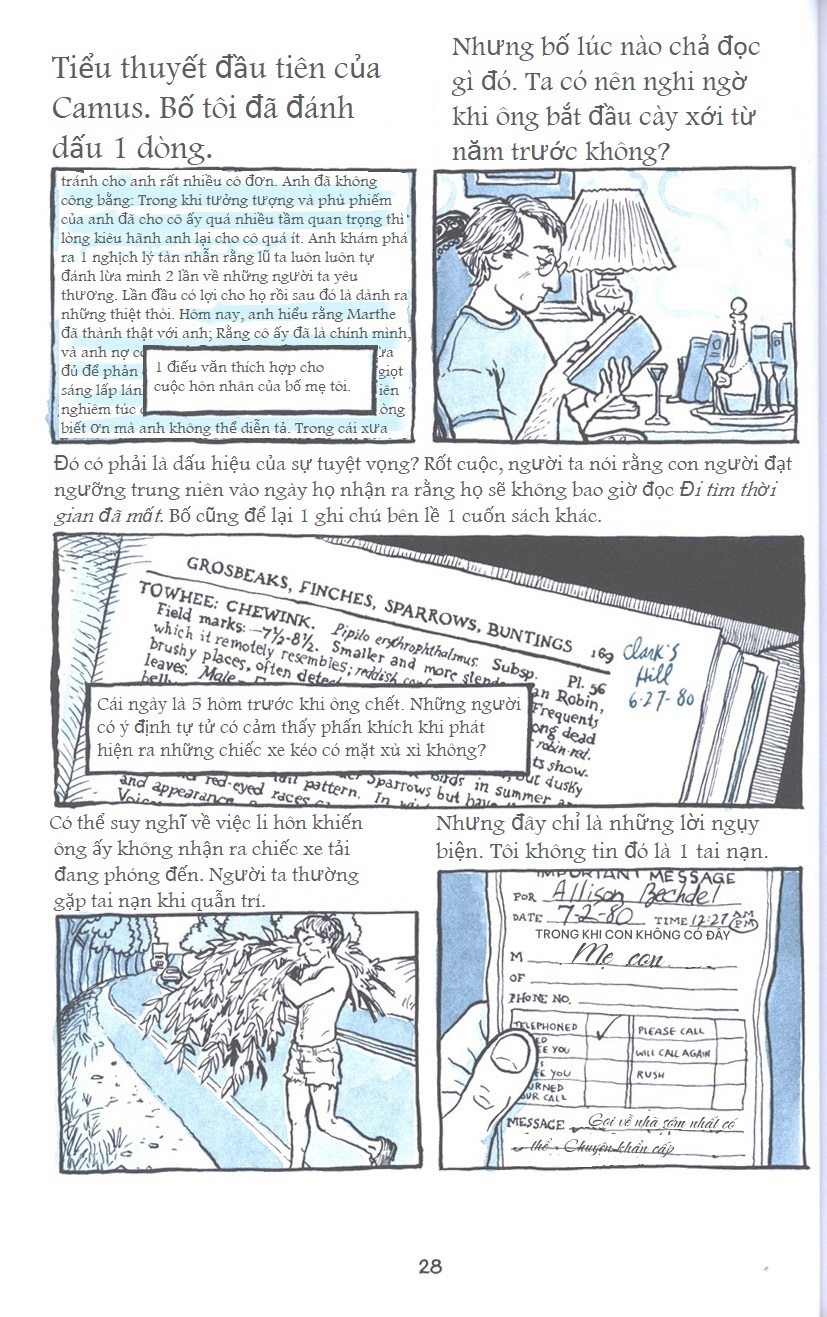 Tiểu thuyết đầu tiên của
Camus. Bố tôi đã đánh
dấu 1 dòng.
Nhưng bố lúc nào chả đọc
gì đó. Ta có nên nghi ngờ
khi ông bắt đầu cày xới từ
năm trước không?
tránh cho anh rất nhiều cô đơn. Anh đã không
công bằng: Trong khi tưởng tượng và phù phiếm
của anh đã cho cô ấy quá nhiều tầm quan trọng thì
lòng kiêu hãnh anh lại cho cô quá ít. Anh khám phá
ra 1 nghịch lý tàn nhẫn rằng lũ ta luôn luôn tự
đánh lừa mình 2 lần về những người ta yêu
thương. Lần đầu có lợi cho họ rồi sau đó là dành ra
những thiệt thòi. Hôm nay, anh hiểu rằng Marthe
đã thành thật với anh; Rằng cô ấy đã là chính mình,
và anh nợ
đủ để phản giọt
sáng lấp
nghiêm túc
biết ơn mà anh không thể diễn tả. Trong cái xưa
1 điếu văn thích hợp cho
cuộc hôn nhân của bố mẹ tôi.
Đó có phải là dấu hiệu của sự tuyệt vọng? Rốt cuộc, người ta nói rằng con người đạt
ngưỡng trung niên vào ngày họ nhận ra rằng họ sẽ không bao giờ đọc Đi tìm thời
gian đã mất. Bố cũng để lại 1 ghi chú bên lề 1 cuốn sách khác.
GROSBEAKS, FINCHES, SPARROWS, BUNTINGS 169
TOWHEE: CHEWINK. Pipilo erythrophthalmus. Subsp. Pl. 56
Field marks:—7½-8½. Smaller and more slend an Robin,
which it remotely resembles; reddish Frequents
brushy places, often detec ong dead
leaves. Male robin-red.
ts show.
but dusky
birds in summer
red-eyed races tail pattern. In Sparrows but have
and appearance
Clark's
Hill
6-27-80
Cái ngày là 5 hôm trước khi ông chết. Những người
có ý định tự tử có cảm thấy phấn khích khi phát
hiện ra những chiếc xe kéo có mặt xù xì không?
Có thể suy nghĩ về việc li hôn khiến
ông ấy không nhận ra chiếc xe tải
đang phóng đến. Người ta thường
gặp tai nạn khi quẫn trí.
Nhưng đây chỉ là những lời ngụy
biện. Tôi không tin đó là 1 tai nạn.
IMPORTANT MESSAGE
FOR Allison Bechdel
DATE 7-2-80 TIME 12:27 AM PM
TRONG KHI CON KHÔNG CÓ ĐÂY
M Mẹ con
OF
PHONE NO.
TELEPHONED PLEASE CALL
EE YOU WILL CALL AGAIN
EE YOU RUSH
URNED
OUR CALL
MESSAGE Gọi về nhà sớm nhất có
thể - Chuyện khẩn cấp
28